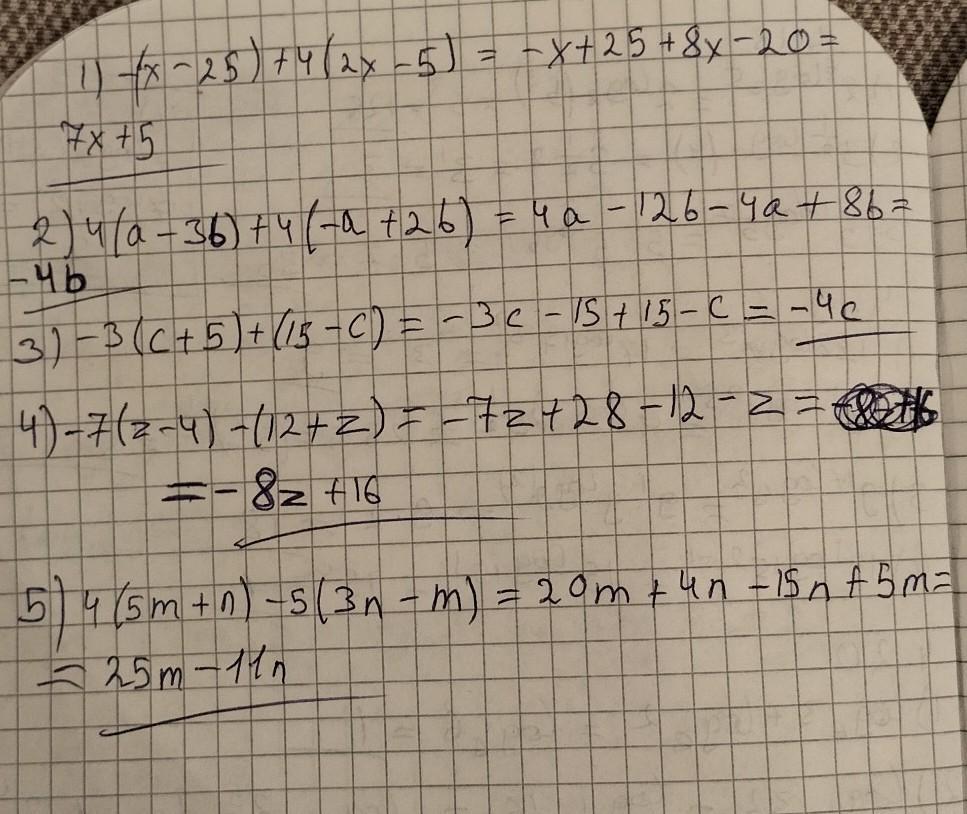 1) -(x - 25) + 4(2x - 5) = -x + 25 + 8x - 20 =
7x + 5
2) 4(a - 3b) + 4(-a + 2b) = 4a - 12b - 4a + 8b =
-4b
3) -3(c + 5) + (15 - c) = -3c - 15 + 15 - c = -4c
4) -7(z - 4) - (12 + z) = -7z + 28 - 12 - z =
= -8z + 16
5) 4(5m + n) - 5(3n - m) = 20m + 4n - 15n + 5m =
= 25m - 11n